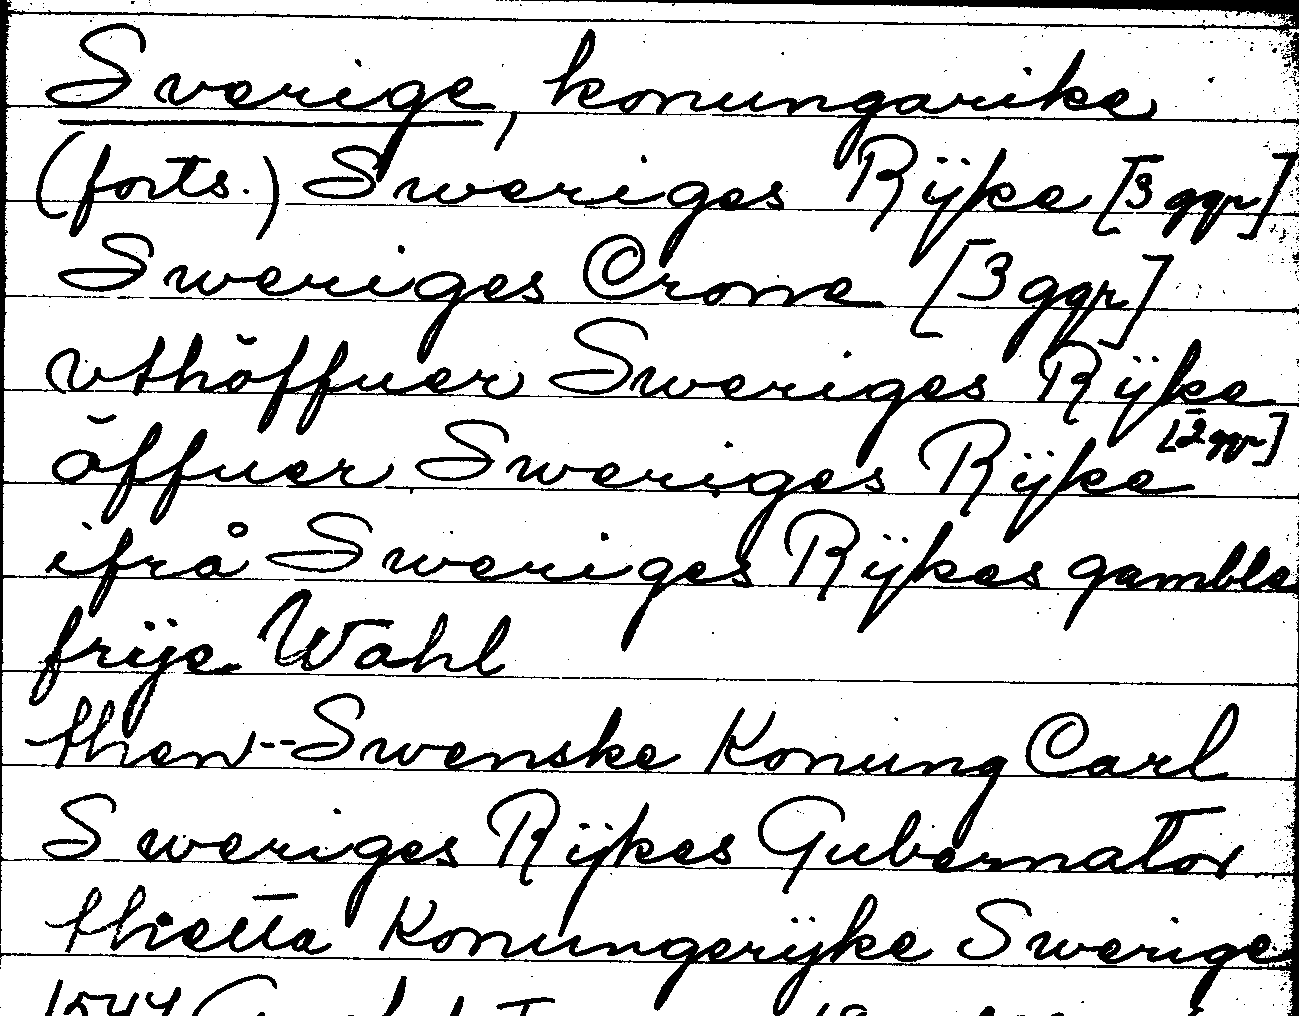 Sverige, konungarike
(forts.) Sweriges Rijke [3 ggr]
Sweriges Crone [3 ggr]
vthöffuer Sweriges Rijke
öffuer Sweriges Rijke [2 ggr]
ifrå Sweriges Rijkes gambla
frije Wahl
then -- Swenske Konung Carl
Sweriges Rijkes Gubernator
thietta Konungerijke Swerige
1544